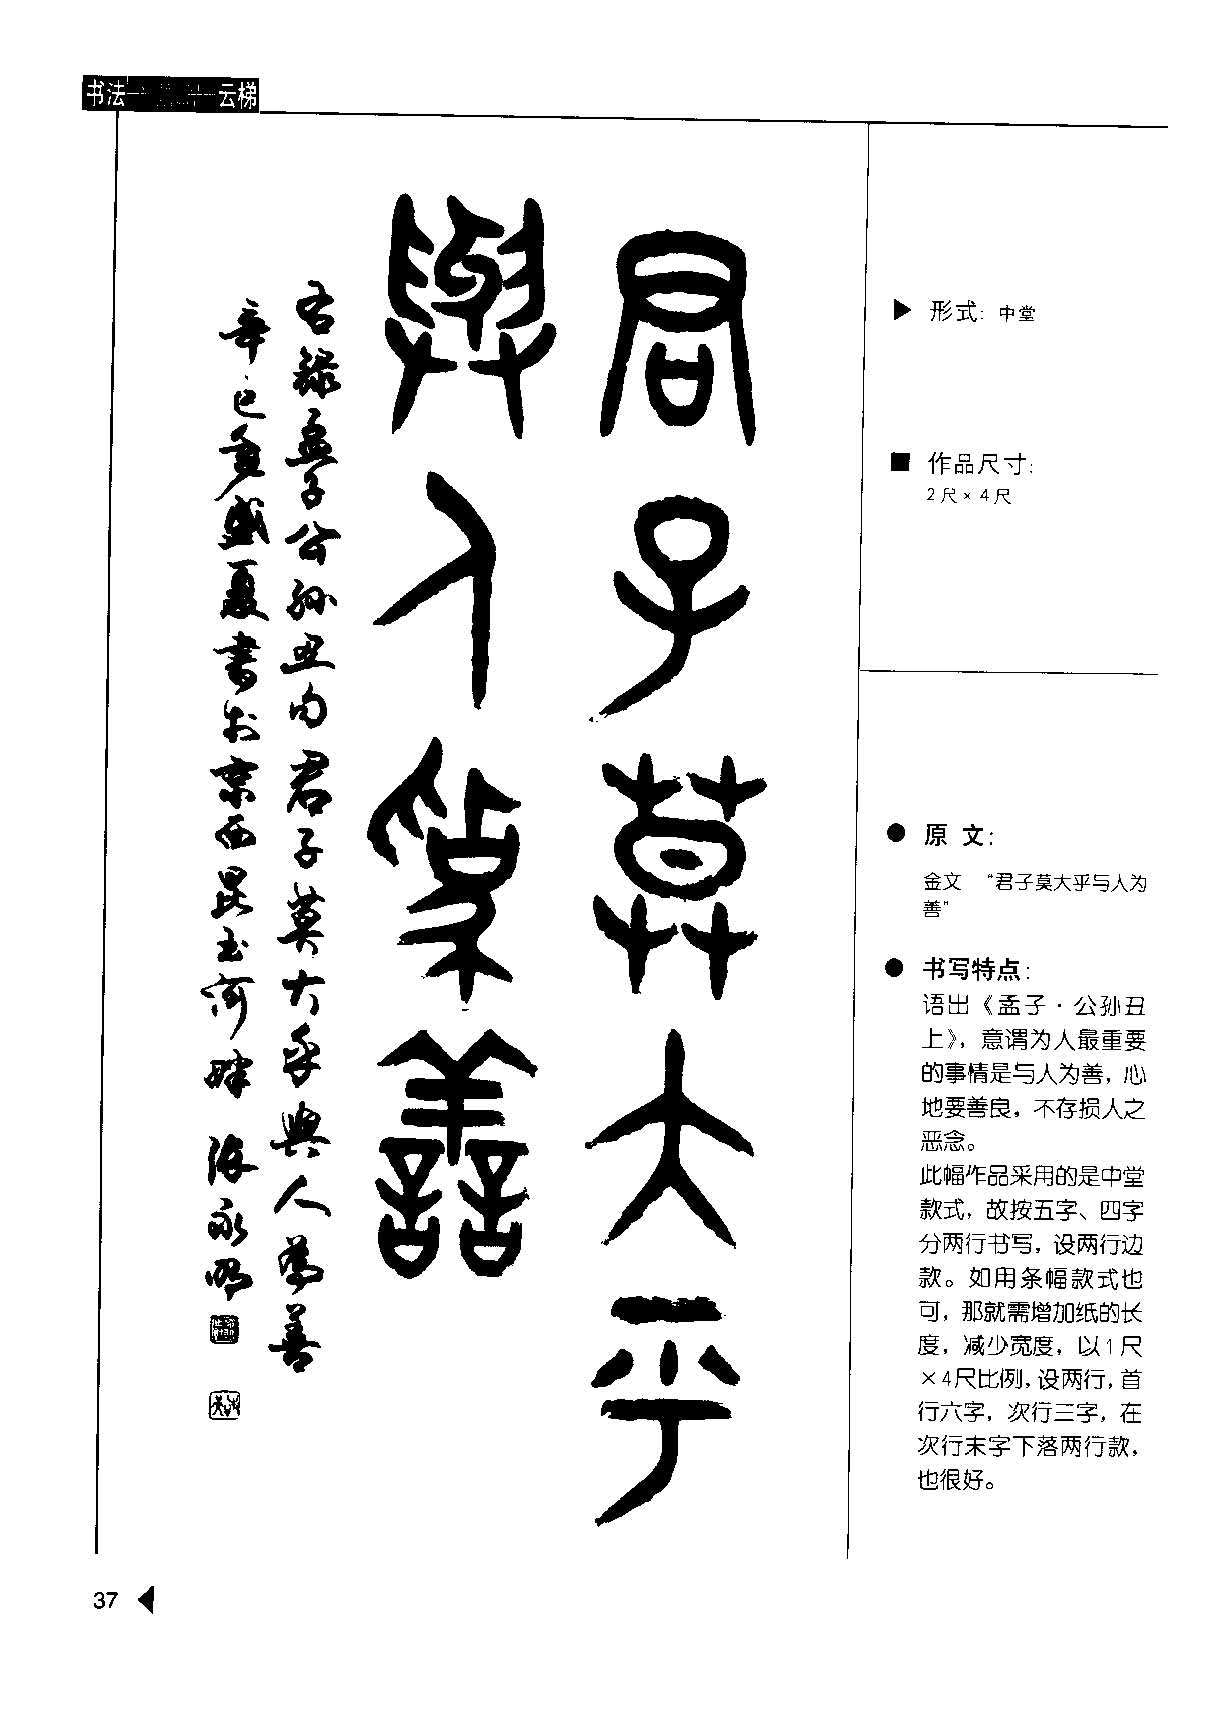 书法
云梯
君子莫大乎
與人為善
右錄孟子公孙丑句君子莫大乎與人為善
辛巳夏盛夏書於京西昆玉河畔 张永明
▶ 形式: 中堂
■ 作品尺寸:
2尺×4尺
● 原 文:
金文 “君子莫大乎与人为
善”
● 书写特点:
语出《孟子·公孙丑
上》，意谓为人最重要
的事情是与人为善，心
地要善良，不存损人之
恶念。
此幅作品采用的是中堂
款式，故按五字、四字
分两行书写，设两行边
款。如用条幅款式也
可，那就需增加纸的长
度，减少宽度，以1尺
×4尺比例，设两行，首
行六字，次行三字，在
次行末字下落两行款，
也很好。
37 ◀